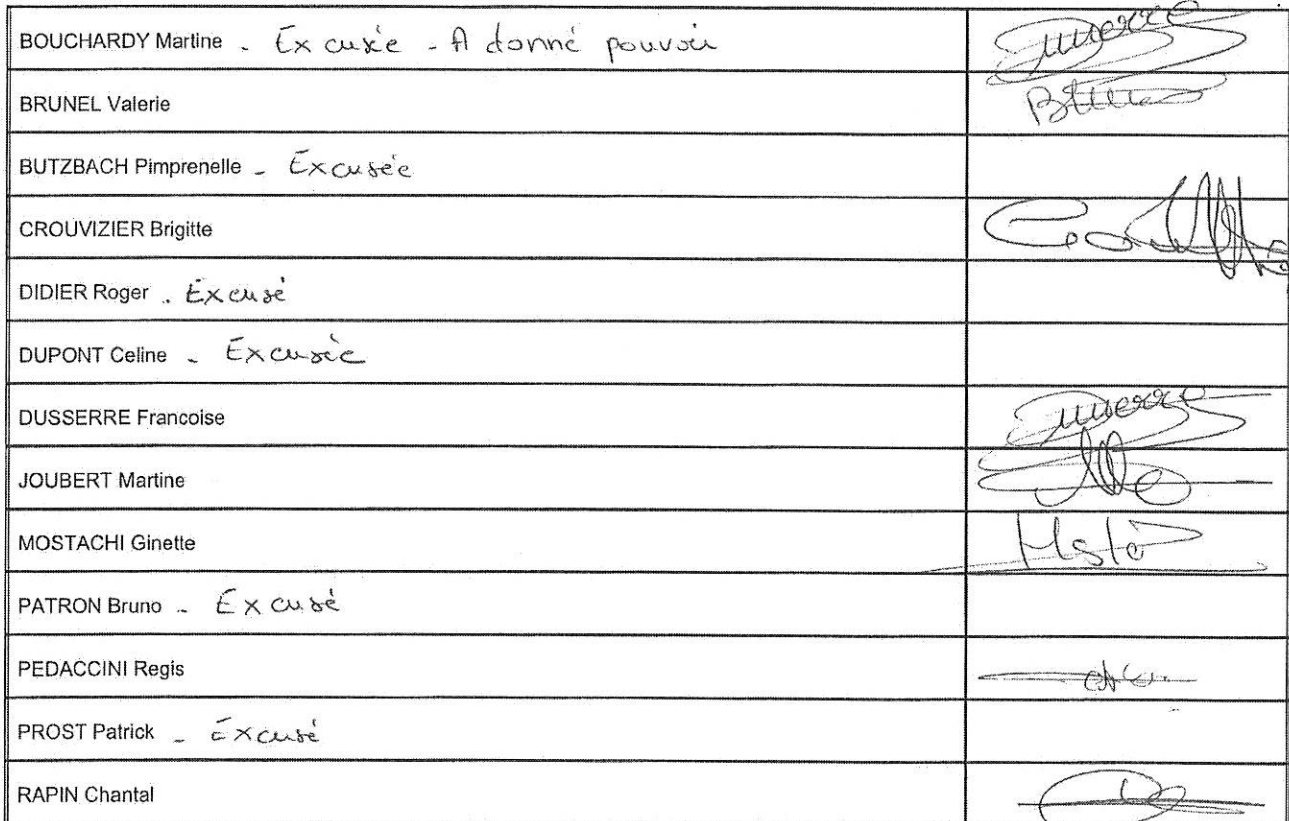 BOUCHARDY Martine - Excusée - A donné pouvoir
BRUNEL Valerie
BUTZBACH Pimprenelle - Excusée
CROUVIZIER Brigitte
DIDIER Roger - Excusé
DUPONT Celine - Excusée
DUSSERRE Francoise
JOUBERT Martine
MOSTACHI Ginette
PATRON Bruno - Excusé
PEDACCINI Regis
PROST Patrick - Excusé
RAPIN Chantal